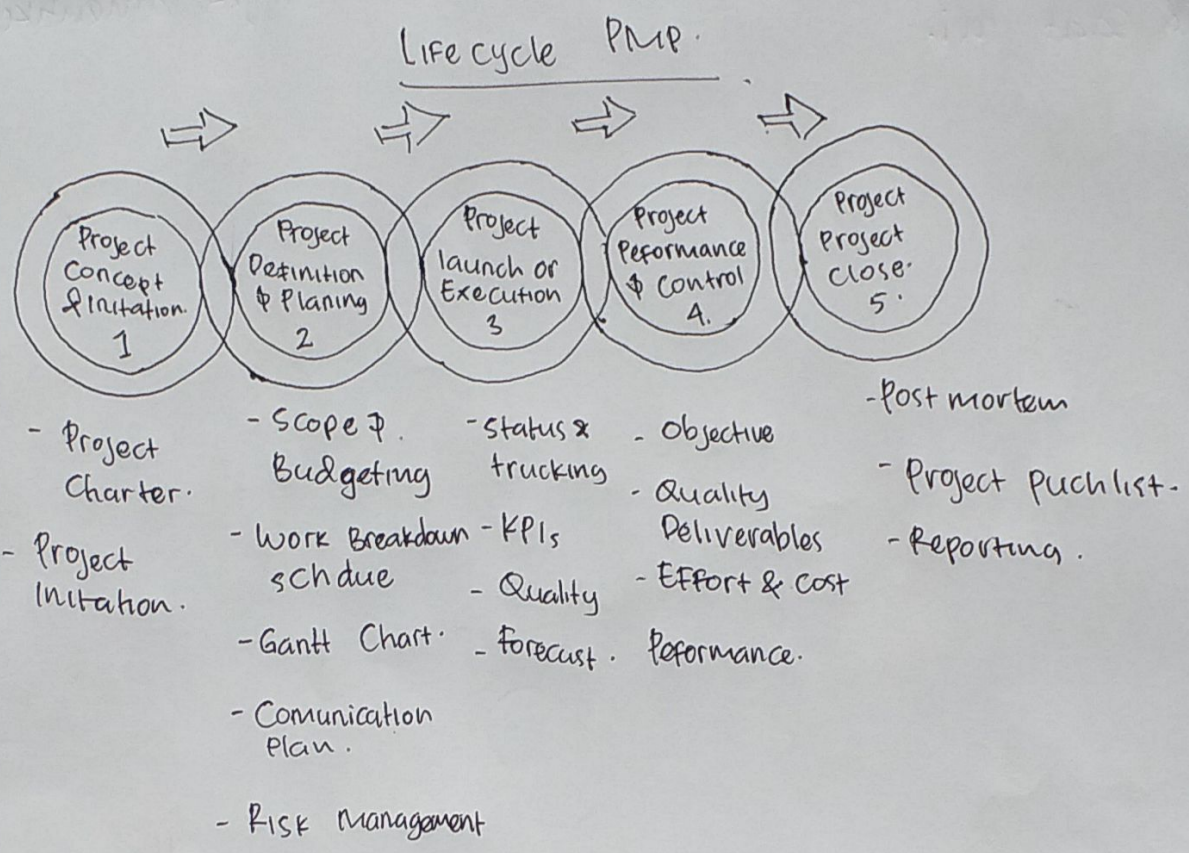 Lifecycle PMP.
Project
Concept
& Initation.
1
Project
Definition
& Planing
2
Project
launch or
Execution
3
Project
Peformance
& Control
4.
Project
Project
Close.
5.
- Project
Charter.
- Project
Initation.
- Scope &.
Budgeting
- Work Breakdown
schdue
- Gantt Chart.
- Comunication
Plan.
- Risk Management
- Status &
trucking
- KPIs
- Quality
- Forecust.
- Objective
- Quality
Deliverables
- Effort & Cost
Peformance.
- Post mortem
- Project puchlist.
- Reporting.